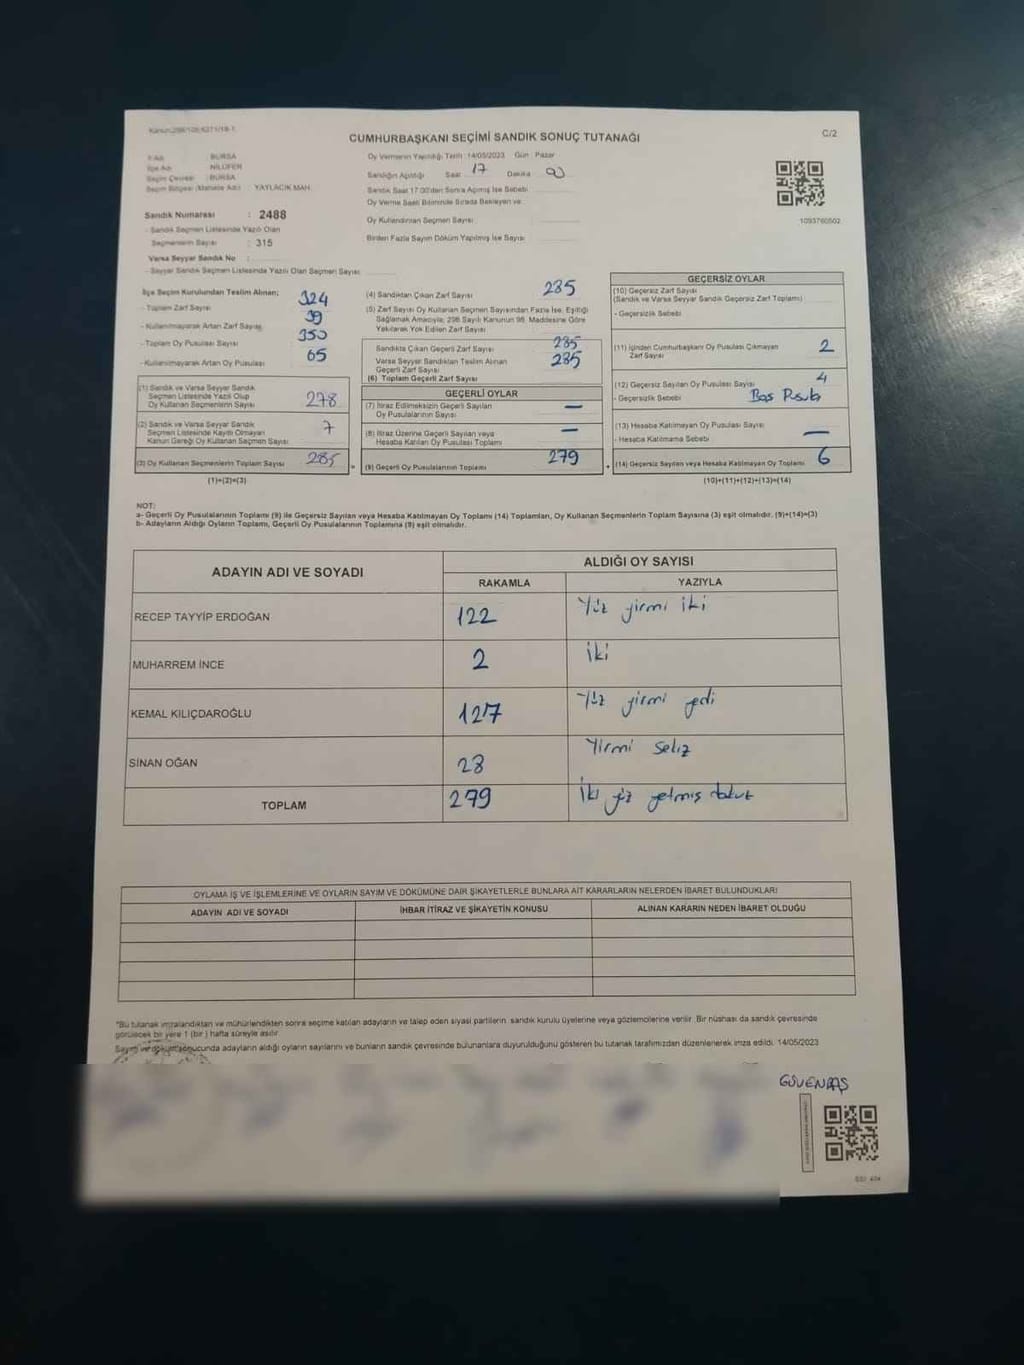 Kanun:298/105;6271/19-1
CUMHURBAŞKANI SEÇİMİ SANDIK SONUÇ TUTANAĞI
C/2
İl Adı : BURSA
İlçe Adı : NİLÜFER
Seçim Çevresi : BURSA
Seçim Bölgesi (Mahalle Adı) YAYLACIK MAH.
Oy Vermenin Yapıldığı Tarih :14/05/2023 Gün : Pazar
Sandığın Açıldığı Saat 17 Dakika 00
Sandık Saat 17.00'den Sonra Açılmış İse Sebebi
Oy Verme Saati Bitiminde Sırada Bekleyen ve
Oy Kullandırılan Seçmen Sayısı
Birden Fazla Sayım Döküm Yapılmış İse Sayısı
1093760502
Sandık Numarası : 2488
- Sandık Seçmen Listesinde Yazılı Olan
Seçmenlerin Sayısı : 315
Varsa Seyyar Sandık No :
- Seyyar Sandık Seçmen Listesinde Yazılı Olan Seçmen Sayısı
İlçe Seçim Kurulundan Teslim Alınan;
- Toplam Zarf Sayısı 324
- Kullanılmayarak Artan Zarf Sayısı 39
- Toplam Oy Pusulası Sayısı 350
- Kullanılmayarak Artan Oy Pusulası 65
(1) Sandık ve Varsa Seyyar Sandık
Seçmen Listesinde Yazılı Olup
Oy Kullanan Seçmenlerin Sayısı 278
(2) Sandık ve Varsa Seyyar Sandık
Seçmen Listesinde Kayıtlı Olmayan
Kanun Gereği Oy Kullanan Seçmen Sayısı 7
(3) Oy Kullanan Seçmenlerin Toplam Sayısı 285
(1)+(2)=(3)
(4) Sandıktan Çıkan Zarf Sayısı 285
(5) Zarf Sayısı Oy Kullanan Seçmen Sayısından Fazla İse, Eşitliği
Sağlamak Amacıyla, 298 Sayılı Kanunun 98. Maddesine Göre
Yakılarak Yok Edilen Zarf Sayısı
Sandıkta Çıkan Geçerli Zarf Sayısı 285
Varsa Seyyar Sandıktan Teslim Alınan
Geçerli Zarf Sayısı
(6) Toplam Geçerli Zarf Sayısı 285
GEÇERLİ OYLAR
(7) İtiraz Edilmeksizin Geçerli Sayılan
Oy Pusulalarının Sayısı —
(8) İtiraz Üzerine Geçerli Sayılan veya
Hesaba Katılan Oy Pusulası Toplamı —
(9) Geçerli Oy Pusulalarının Toplamı 279
GEÇERSİZ OYLAR
(10) Geçersiz Zarf Sayısı
(Sandık ve Varsa Seyyar Sandık Geçersiz Zarf Toplamı)
- Geçersizlik Sebebi
(11) İçinden Cumhurbaşkanı Oy Pusulası Çıkmayan
Zarf Sayısı 2
(12) Geçersiz Sayılan Oy Pusulası Sayısı 4
- Geçersizlik Sebebi Boş Pusula
(13) Hesaba Katılmayan Oy Pusulası Sayısı —
- Hesaba Katılmama Sebebi
(14) Geçersiz Sayılan veya Hesaba Katılmayan Oy Toplamı 6
(10)+(11)+(12)+(13)=(14)
NOT:
a- Geçerli Oy Pusulalarının Toplamı (9) ile Geçersiz Sayılan veya Hesaba Katılmayan Oy Toplamı (14) Toplamları, Oy Kullanan Seçmenlerin Toplam Sayısına (3) eşit olmalıdır. (9)+(14)=(3)
b- Adayların Aldığı Oyların Toplamı, Geçerli Oy Pusulalarının Toplamına (9) eşit olmalıdır.
ADAYIN ADI VE SOYADI
ALDIĞI OY SAYISI
RAKAMLA YAZIYLA
RECEP TAYYİP ERDOĞAN 122 Yüz yirmi iki
MUHARREM İNCE 2 iki
KEMAL KILIÇDAROĞLU 127 Yüz yirmi yedi
SİNAN OĞAN 28 Yirmi sekiz
TOPLAM 279 İki yüz yetmiş dokuz
OYLAMA İŞ VE İŞLEMLERİNE VE OYLARIN SAYIM VE DÖKÜMÜNE DAİR ŞİKAYETLERLE BUNLARA AİT KARARLARIN NELERDEN İBARET BULUNDUKLARI
ADAYIN ADI VE SOYADI İHBAR İTİRAZ VE ŞİKAYETİN KONUSU ALINAN KARARIN NEDEN İBARET OLDUĞU
*Bu tutanak imzalandıktan ve mühürlendikten sonra seçime katılan adayların ve talep eden siyasi partilerin sandık kurulu üyelerine veya gözlemcilerine verilir. Bir nüshası da sandık çevresinde
görülecek bir yere 1 (bir) hafta süreyle asılır.
Sayım ve döküm sonucunda adayların aldığı oyların sayılarını ve bunların sandık çevresinde bulunanlara duyurulduğunu gösteren bu tutanak tarafımızdan düzenlenerek imza edildi. 14/05/2023
GÜVENBAŞ